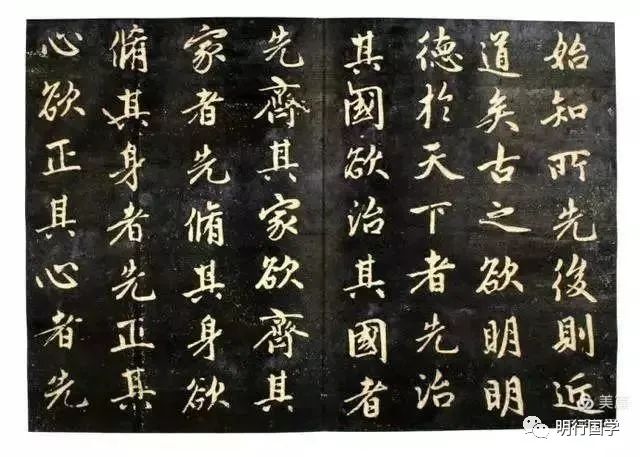 始知所先後則近
道矣古之欲明明
德於天下者先治
其國欲治其國者
先齊其家欲齊其
家者先脩其身欲
脩其身者先正其
心欲正其心者先
美篇
明行国学